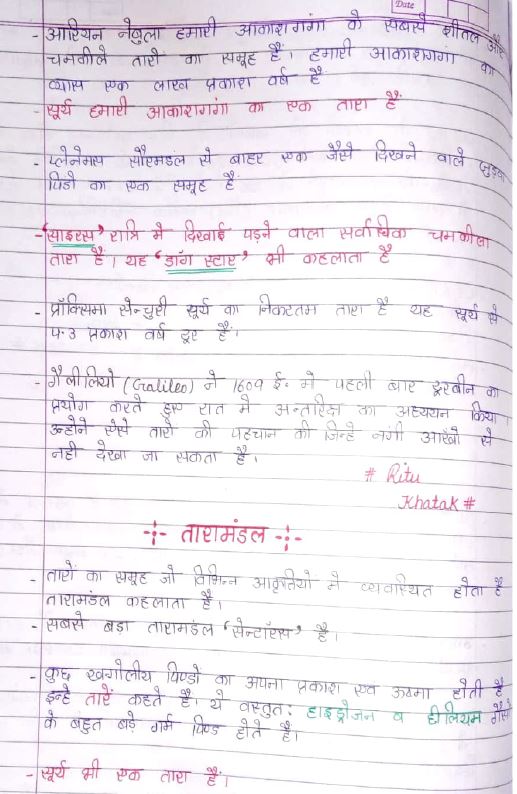 Date
- आरियन नेबुला हमारी आकाशगंगा के सबसे शीतल और
चमकीले तारों का समूह है। हमारी आकाशगंगा का
व्यास एक लाख प्रकाश वर्ष है
- सूर्य हमारी आकाशगंगा का एक तारा है
- प्लेनेमस सौरमंडल से बाहर एक जैसे दिखने वाले जुड़वा
पिंडो का एक समूह है
- 'साइरस' रात्रि मे दिखाई पड़ने वाला सर्वाधिक चमकीला
तारा है। यह 'डांग स्टार' भी कहलाता है
- प्रॉक्सिमा सेन्चुरी सूर्य का निकटतम तारा है यह सूर्य से
4.3 प्रकाश वर्ष दूर है।
- गैलीलियो (Galileo) ने 1609 ई. मे पहली बार दूरबीन का
प्रयोग करते हुए रात मे अन्तरिक्ष का अध्ययन किया।
उन्होंने ऐसे तारो की पहचान की जिन्हे नंगी आखों से
नही देखा जा सकता है।
# Ritu
Khatak #
-:- तारामंडल -:-
- तारों का समूह जो विभिन्न आकृत्तियो मे व्यवास्थित होता है
तारामंडल कहलाता है।
- सबसे बड़ा तारामंडल 'सेन्टॉरस' है।
- कुछ खगोलीय पिण्डों का अपना प्रकाश एव ऊष्मा होती है
इन्हे तारें कहते है। ये वस्तुत: हाइड्रोजन व हीलियम गैसो
के बहुत बड़े गर्म पिण्ड होते है।
- सूर्य भी एक तारा है।